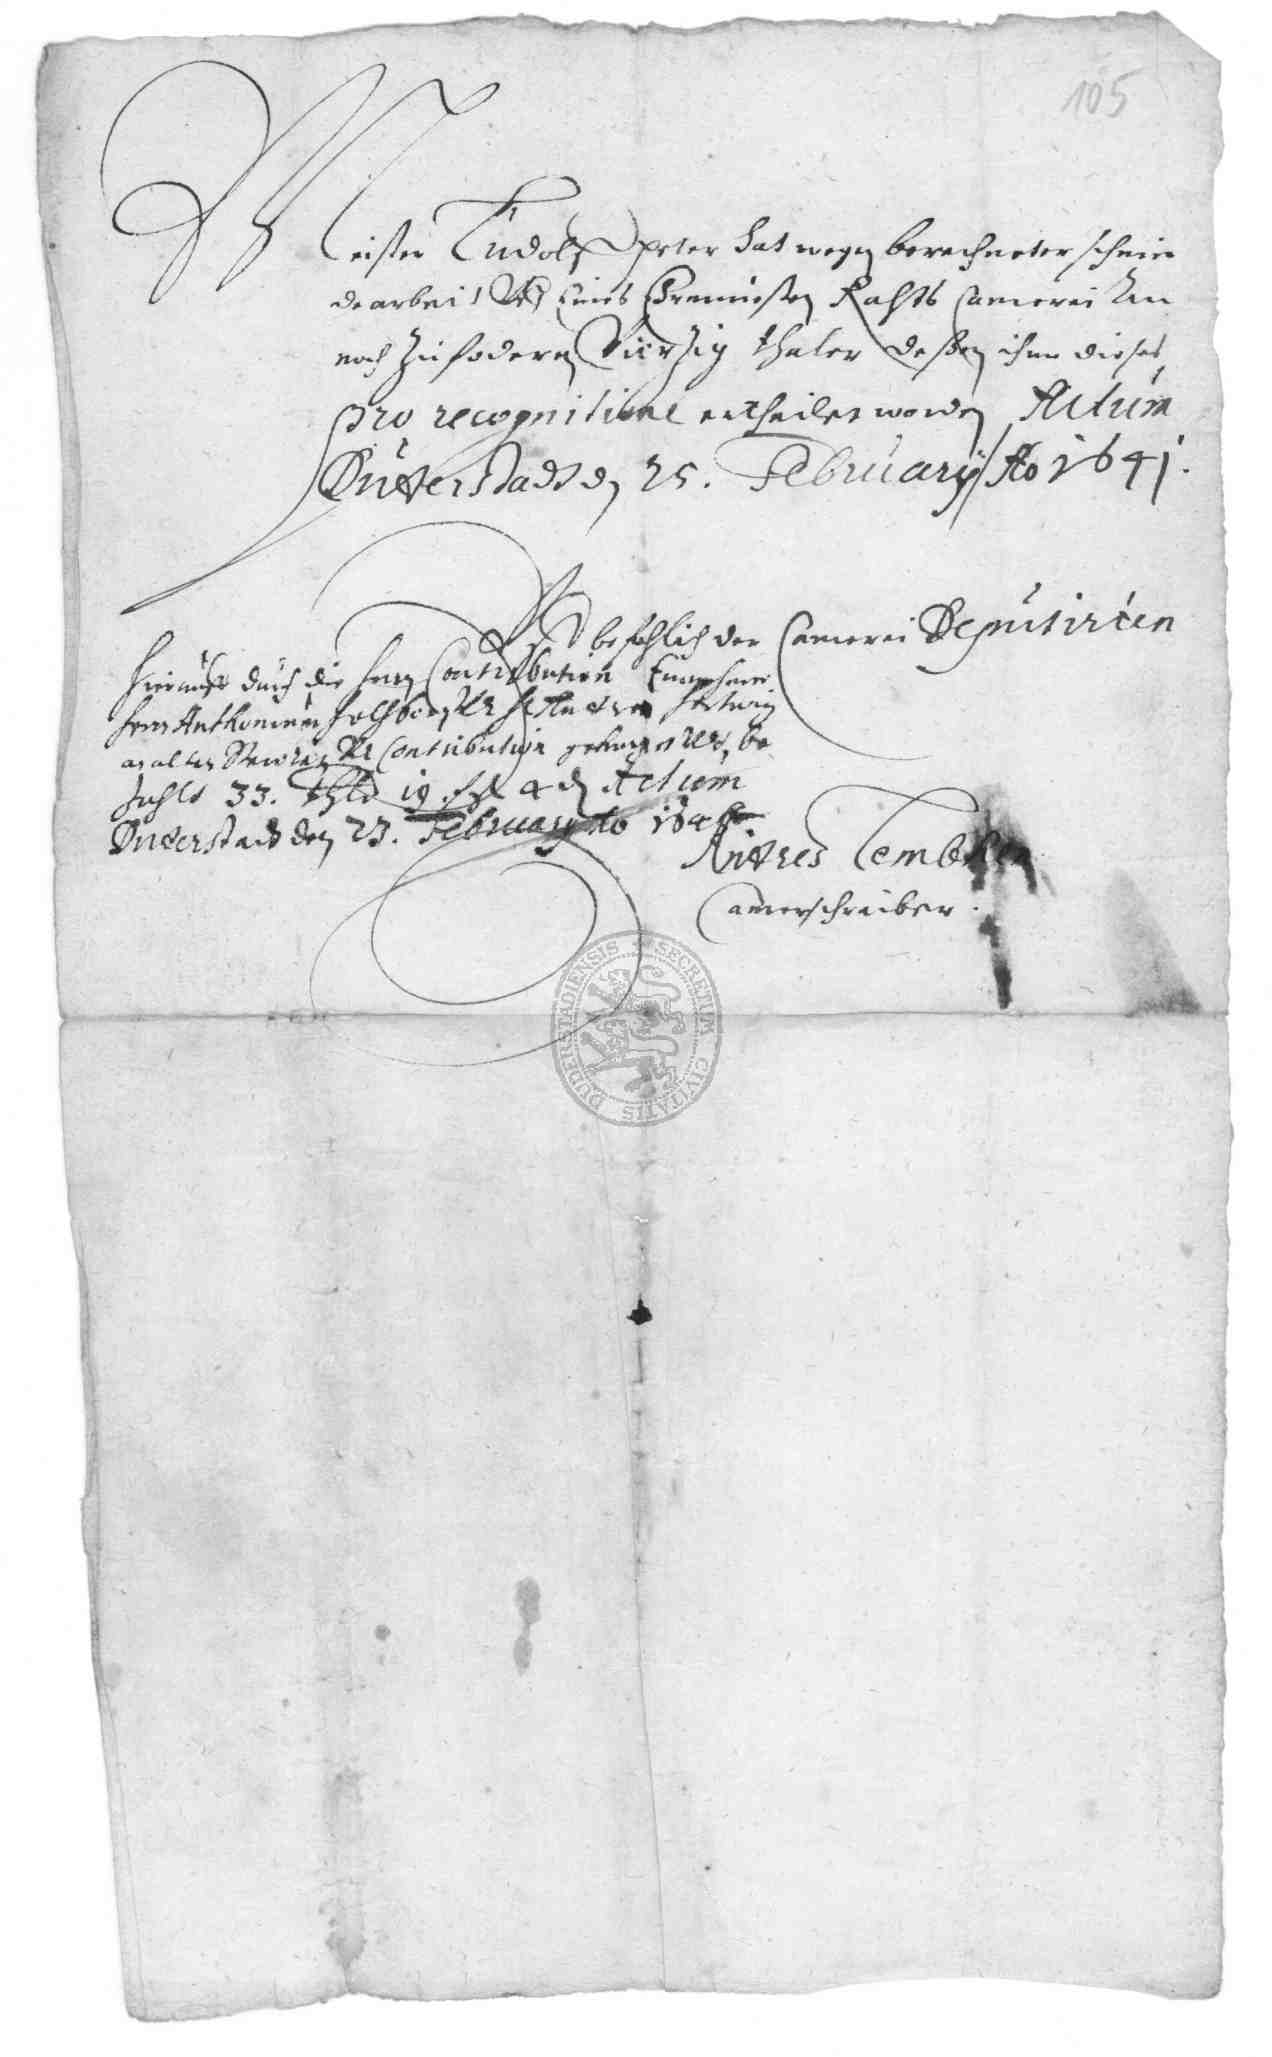 105
Meister Ludolf Peter hat wegen berechneter schmie
dearbeit Eines Rahts Camerei An
noch Zufodern Vierzig thaler deßen ihm dieses
pro recognitione ertheilet worden Actum
Duderstadt den 25. February Ao 1641.
befehlich der Camerei Deputirten
Hierauff durch die Herrn Contribution Einnehmer
Herrn Anthonium
an alten Contribution be
zahlt 33. thlr 19 4 Actum
Duderstadt den 23. February Ao
Andres
Camerschreiber.
SECRETUM CIVITATIS DUDERSTADIENSIS